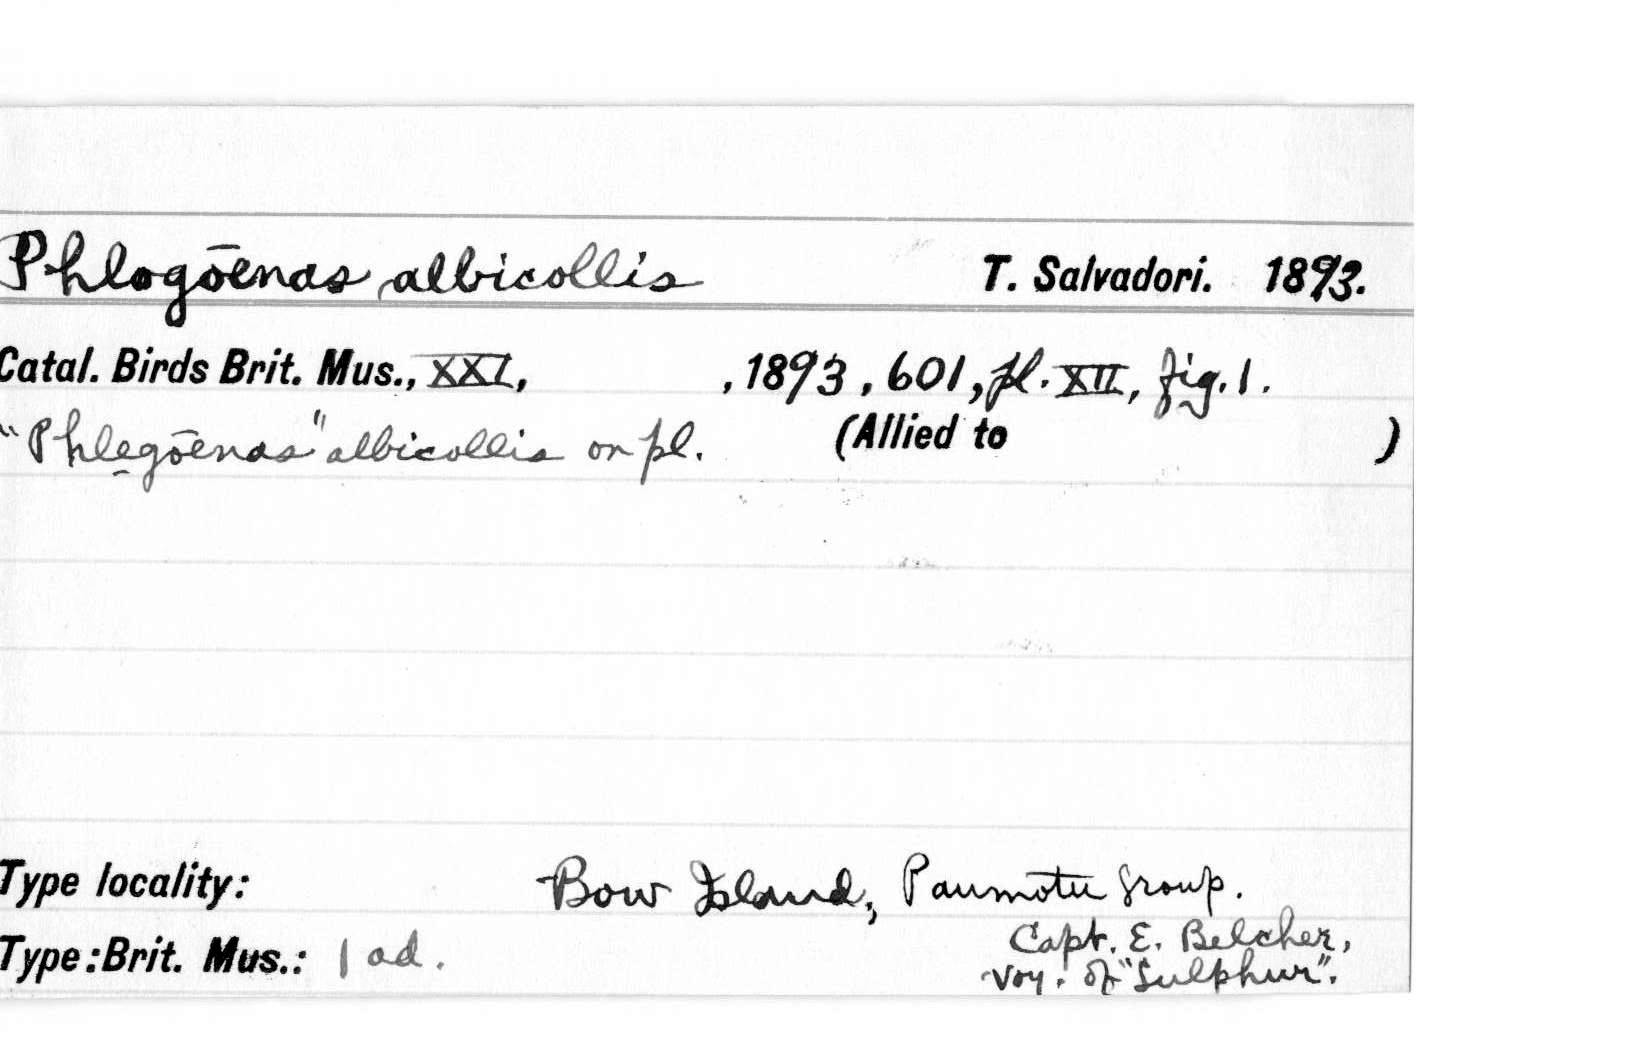 Phlogōenas albicollis T. Salvadori. 1893.
Catal. Birds Brit. Mus., XXI, , 1893, 601, pl. XII, fig. 1.
"Phlegōenas" albicollis on pl. (Allied to )
Type locality: Bow Island, Paumotu Group.
Capt. E. Belcher,
Type: Brit. Mus.: 1 ad.
Voy. of "Sulphur".